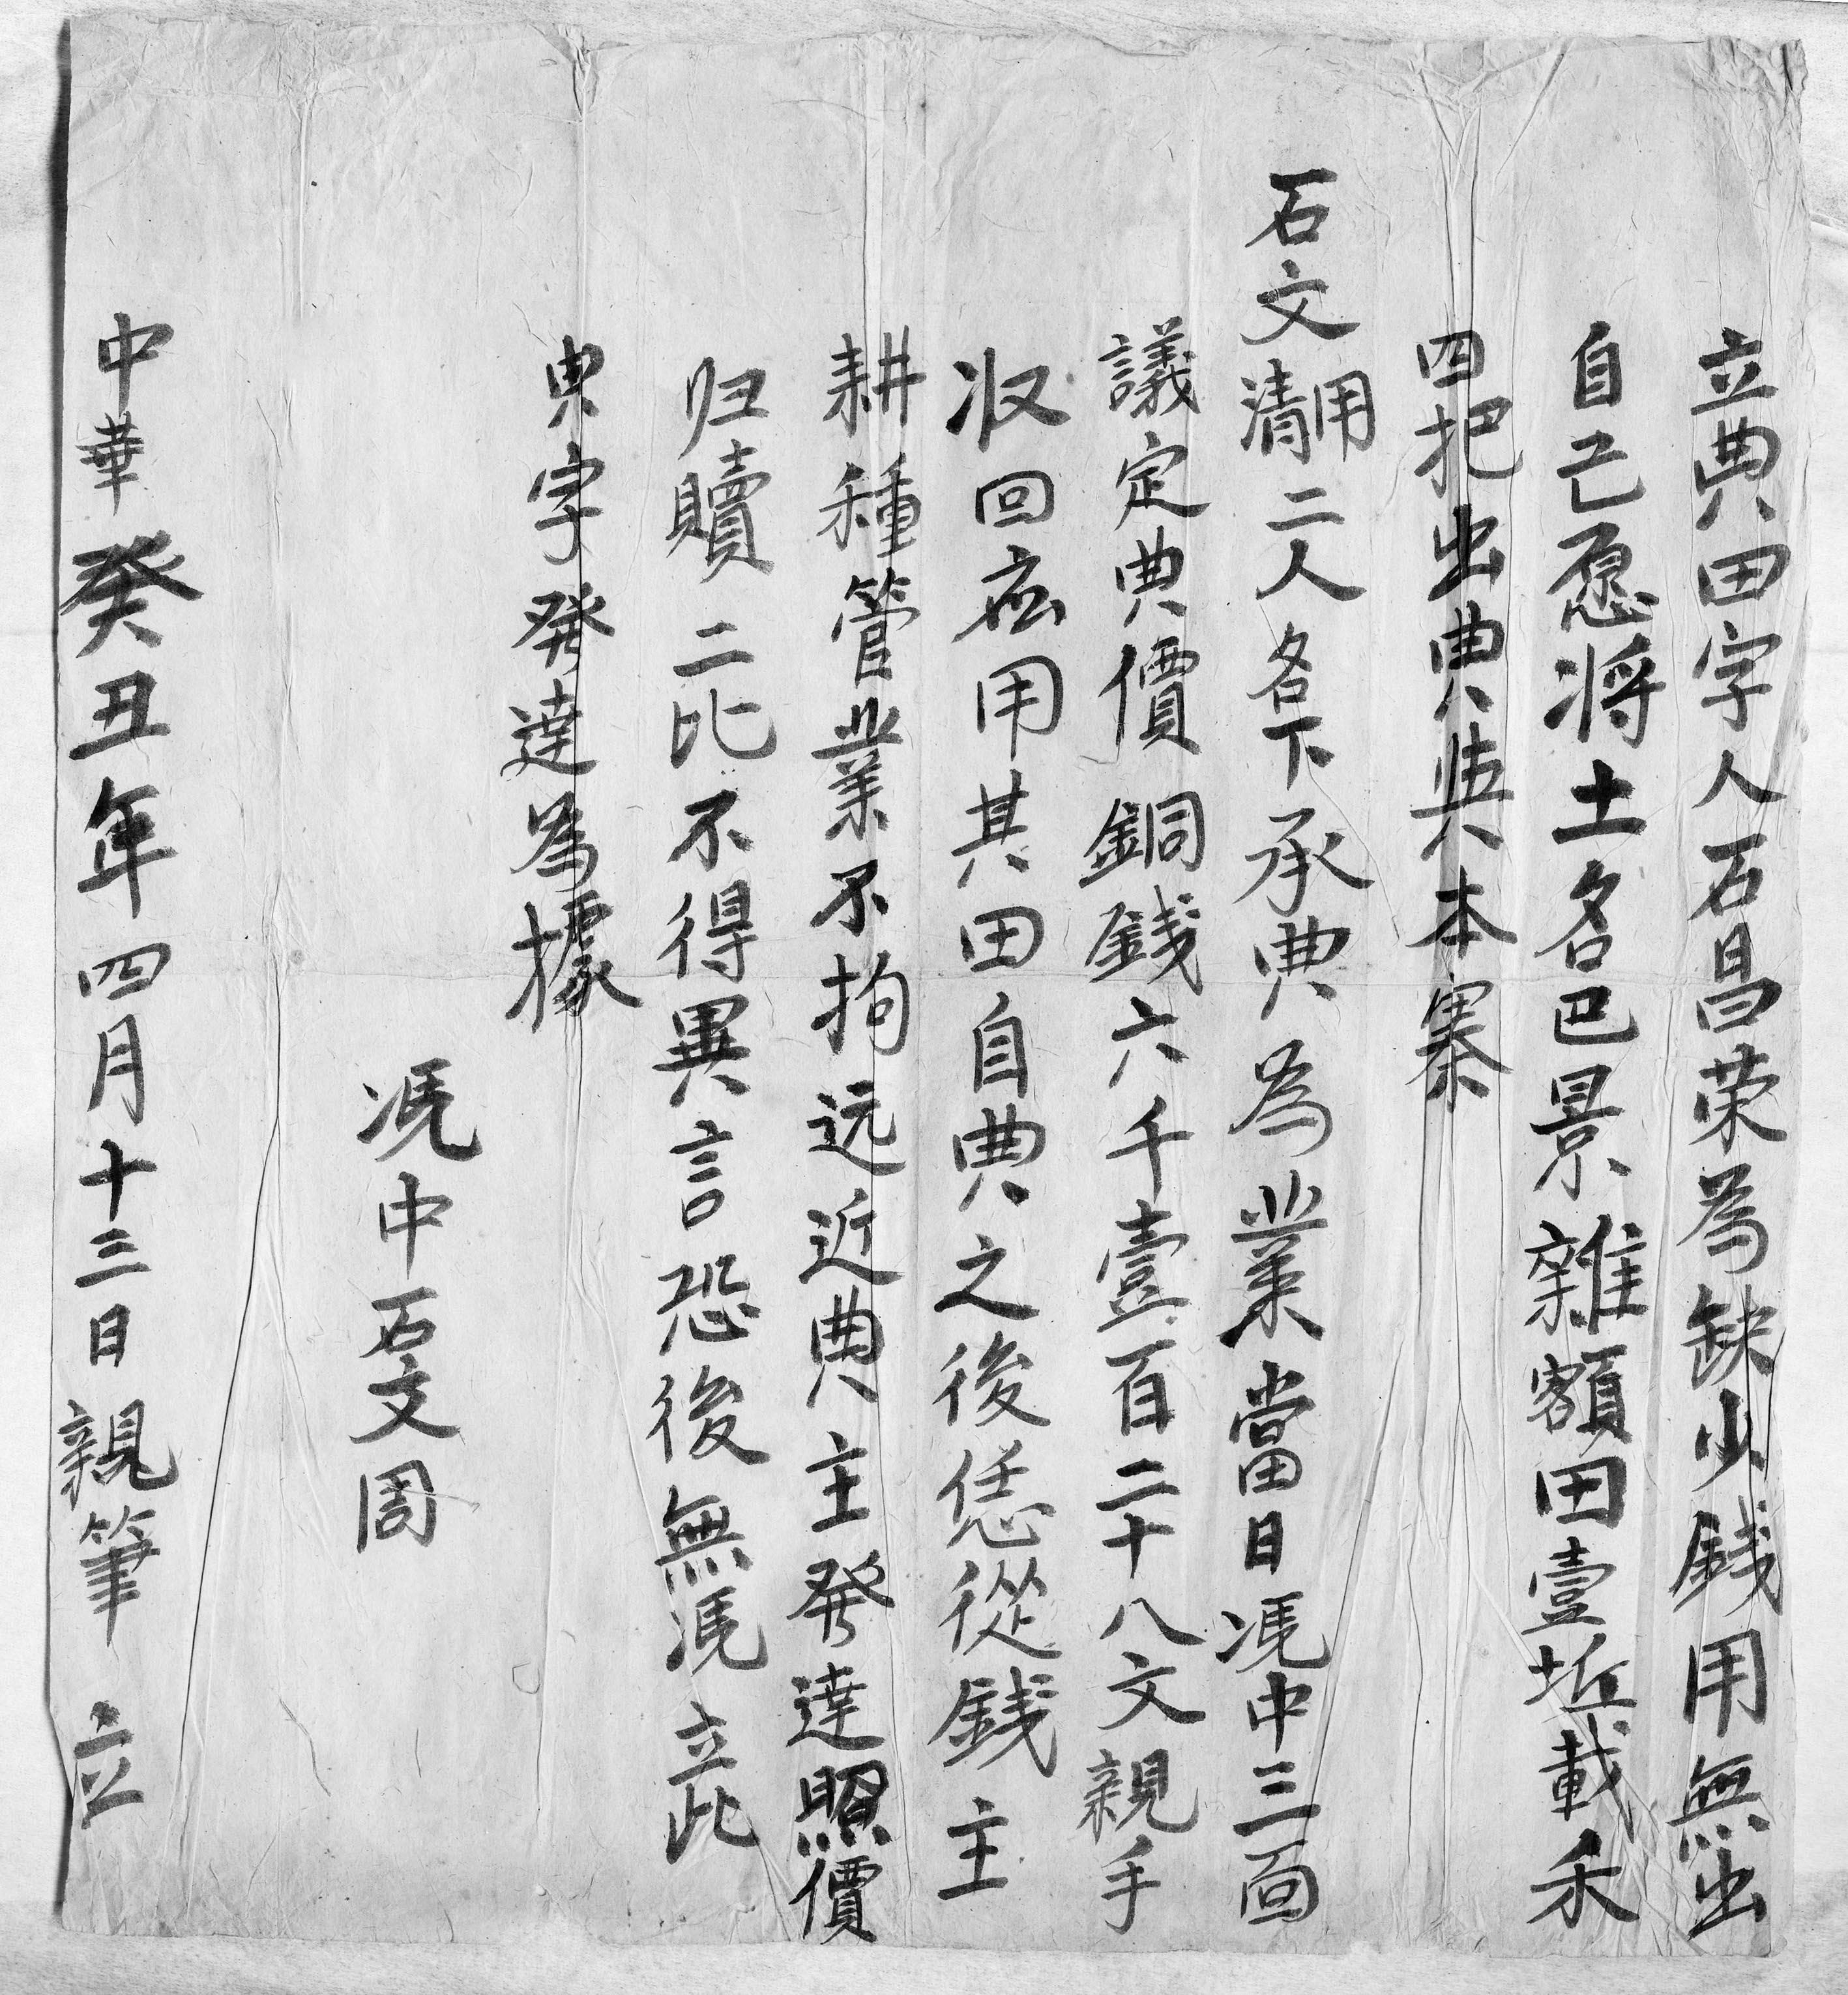 立典田字人石昌荣為缺少錢用無出
自己愿将土名巴景雜額田壹坵載禾
四把出典與本寨
石文清用二人名下承典為業當日馮中三面
議定典價銅錢六千壹百二十八文親手
收回应用其田自典之後恁從錢主
耕種管業不拘远近典主發達照價
归贖二比不得異言恐後無馮立此
典字發達為據
馮中石文周
中華癸丑年四月十三日親筆立